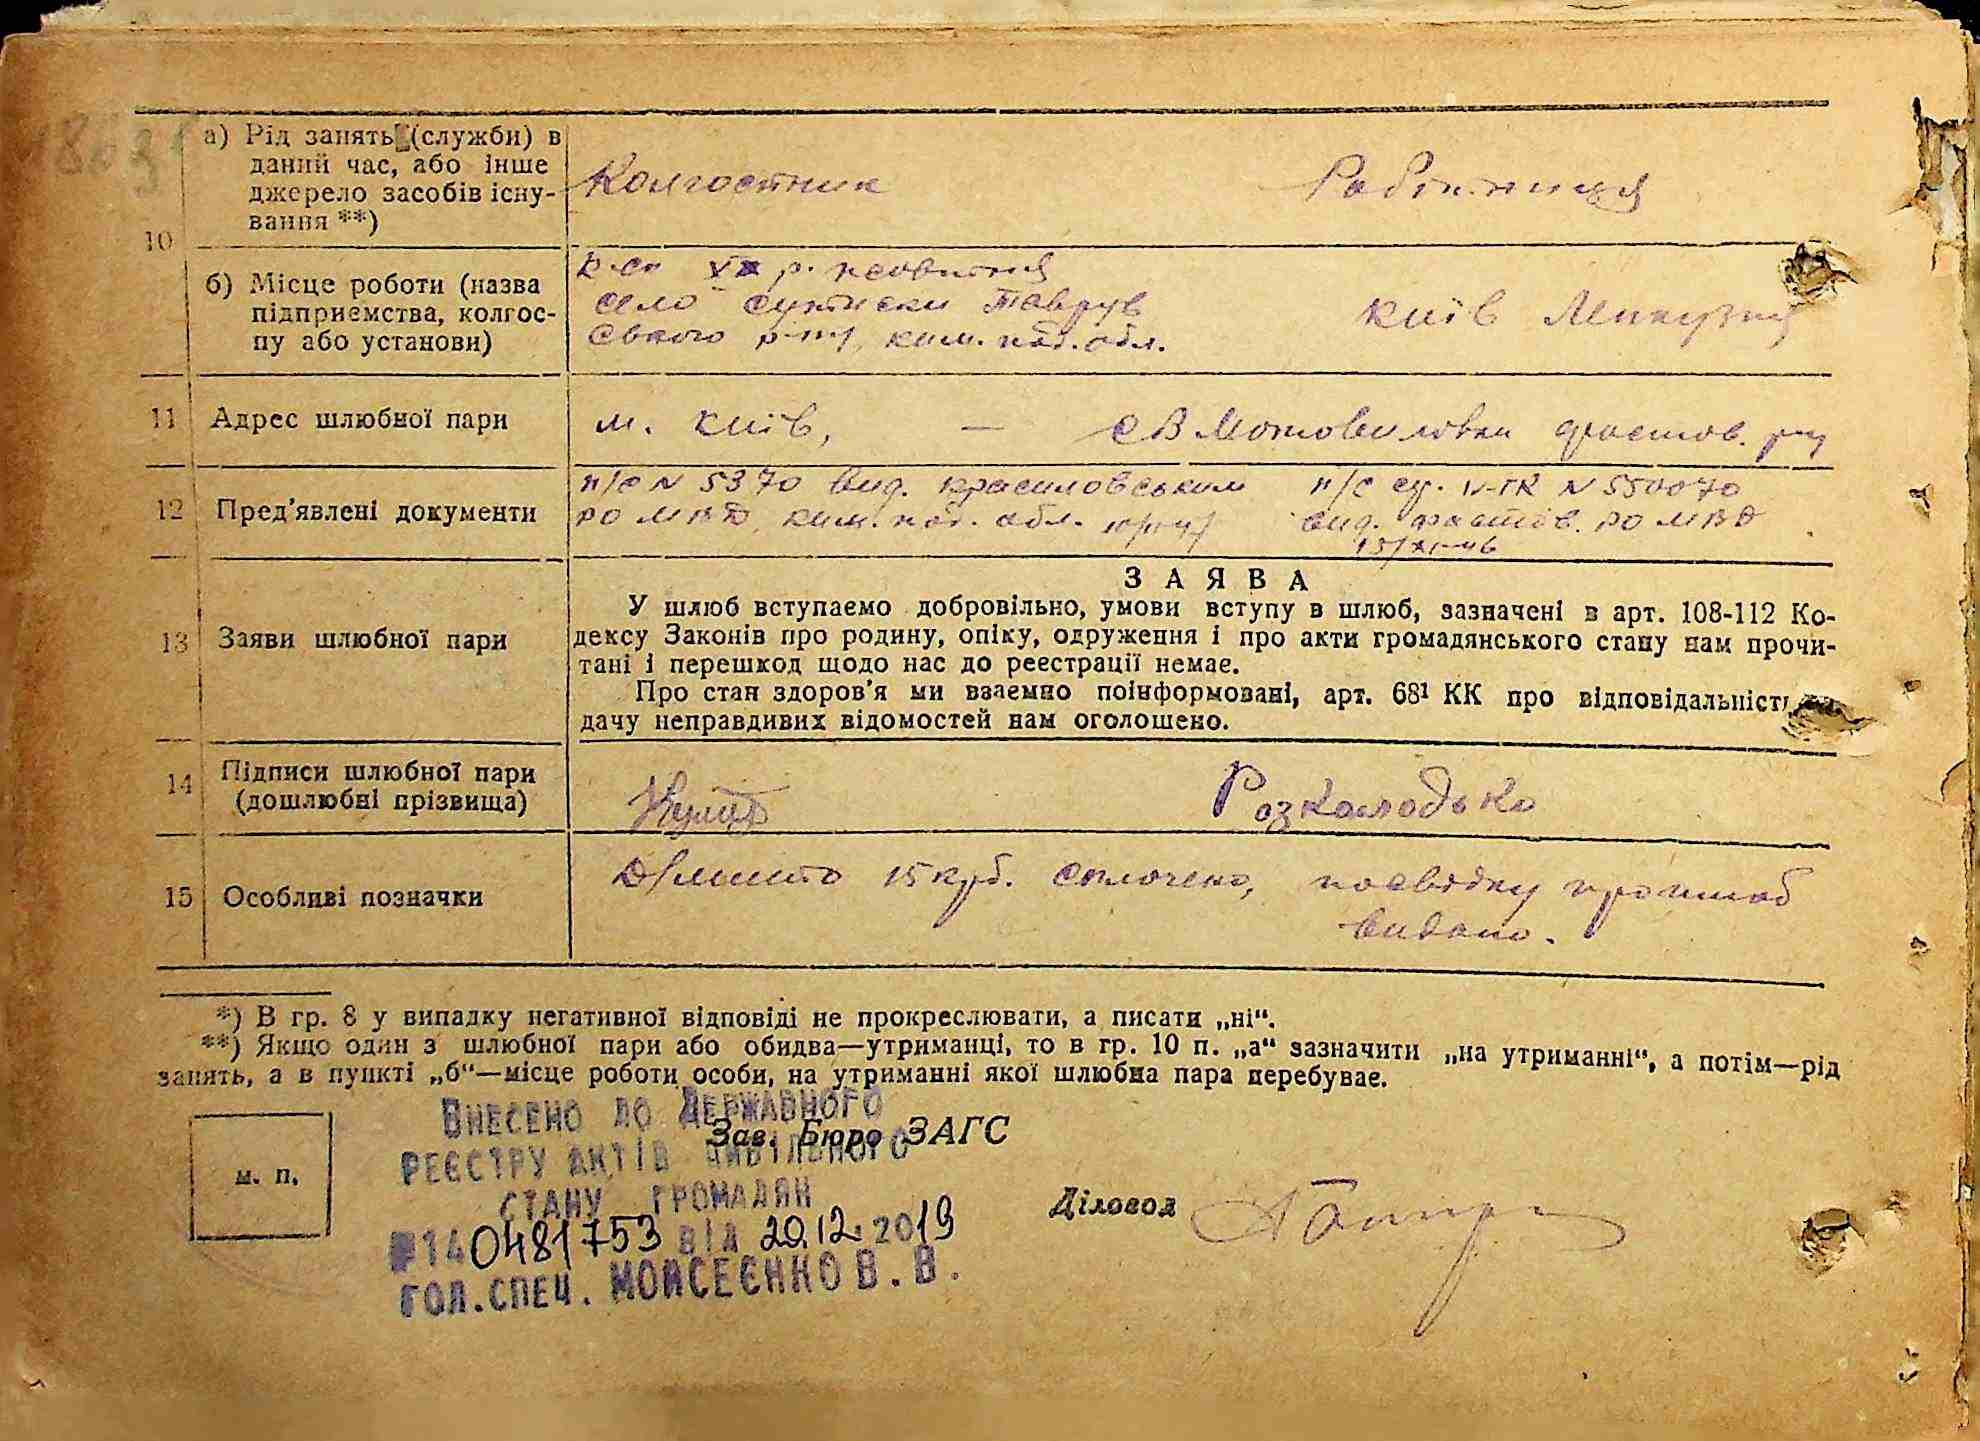 а) Рід занять (служби) в
даний час, або інше
джерело засобів існу-
вання **)
Колгоспник
Робітниця
10
б) Місце роботи (назва
підприємства, колгос-
пу або установи)
село
обл.
Київ
11
Адрес шлюбної пари
м. Київ, — с В Мотовиловка фастов.
12
Пред'явлені документи
п/с N 5370 вид. Красиловським
РО МВД, кам. под. обл.
п/с N 550070
вид. фастов. РО МВД
13
Заяви шлюбної пари
ЗАЯВА
У шлюб вступаємо добровільно, умови вступу в шлюб, зазначені в арт. 108-112 Ко-
дексу Законів про родину, опіку, одруження і про акти громадянського стану нам прочи-
тані і перешкод щодо нас до реєстрації немає.
Про стан здоров'я ми взаємно поінформовані, арт. 68¹ КК про відповідальність
дачу неправдивих відомостей нам оголошено.
14
Підписи шлюбної пари
(дошлюбні прізвища)
Розколодько
15
Особливі позначки
15 крб. сплочено, посвідку про шлюб
видано.
*) В гр. 8 у випадку негативної відповіді не прокреслювати, а писати „ні“.
**) Якщо один з шлюбної пари або обидва—утриманці, то в гр. 10 п. „а“ зазначити „на утриманні“, а потім—рід
занять, а в пункті „б“—місце роботи особи, на утриманні якої шлюбна пара перебуває.
м. п.
Зав. Бюро ЗАГС
Діловод
Внесено до Державного
реєстру актів цивільного
стану громадян
№140481753 від 20.12.2019
гол.спец. Мойсеєнко В.В.